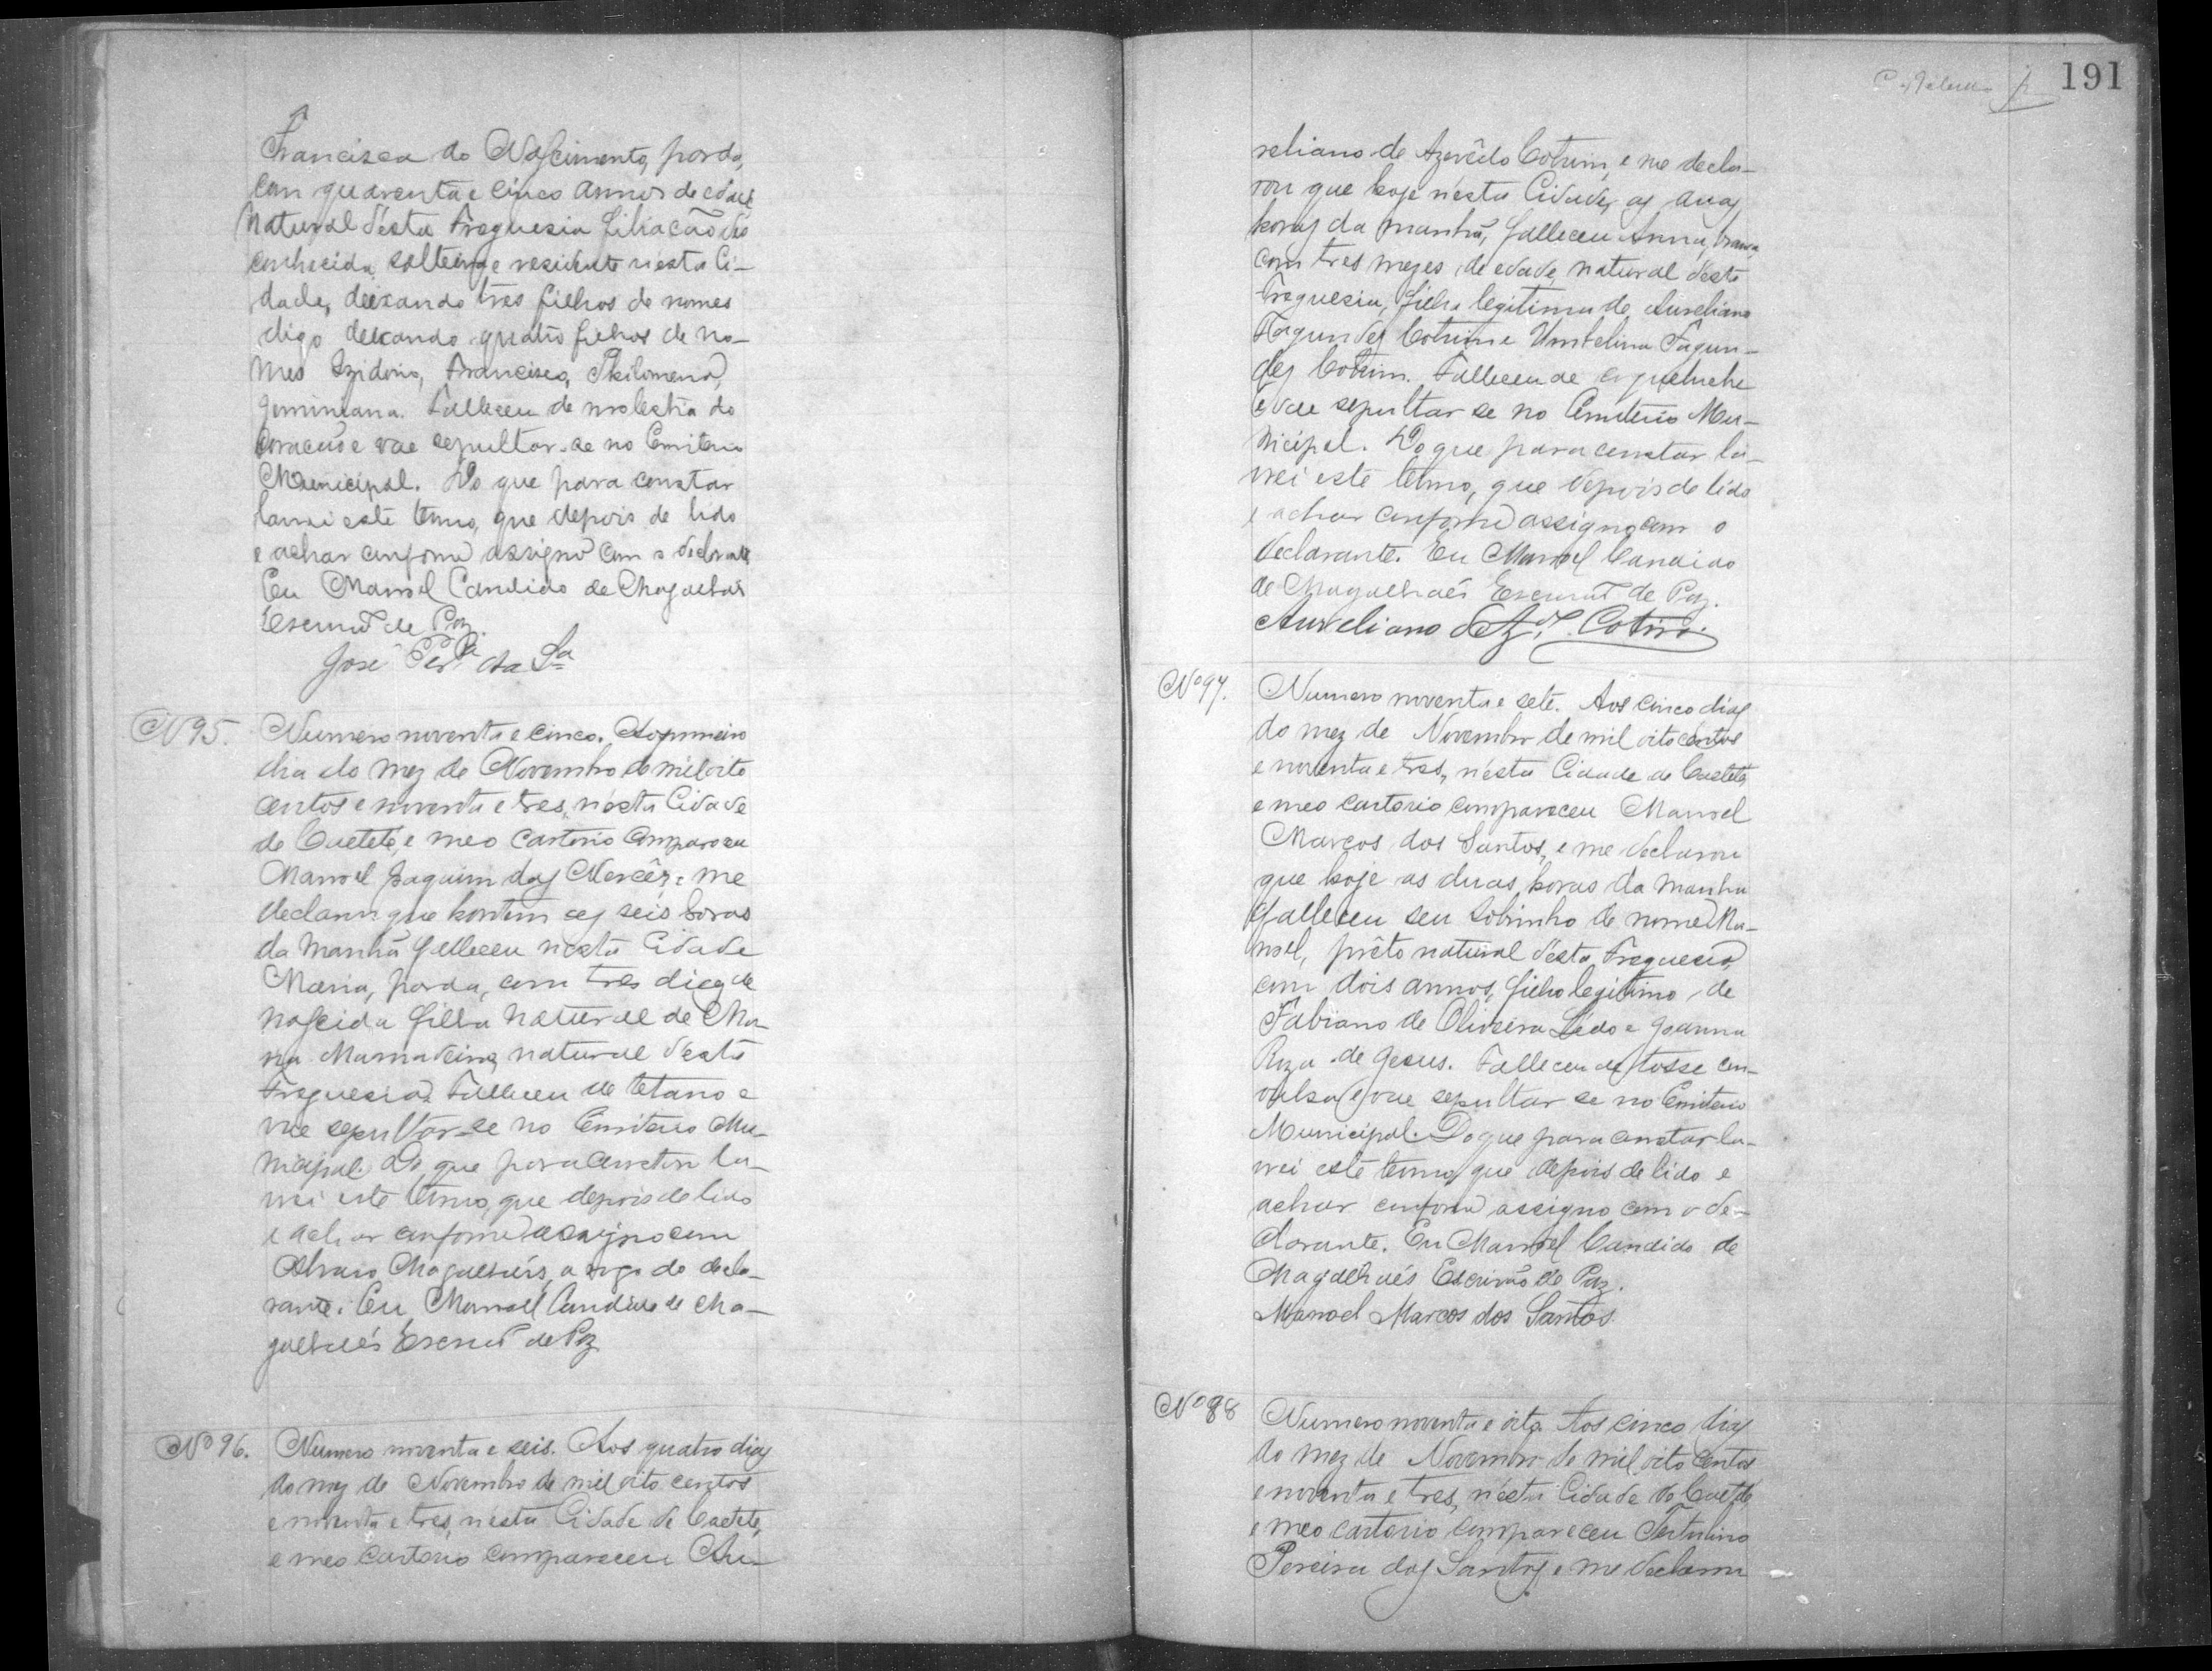 Francisca do Nascimento, parda,
com quarenta e cinco annos de edade
natural d'esta Freguesia filiação des
conhecida, solteira, e residente n'esta Ci-
dade, deixando tres filhos de nomes
digo deixando quatro filhos de no-
mes Izidorio, Francisco, Philomena,
Geminiana. Falleceu de molestia do
coração e vae sepultar-se no Cemiterio
Municipal. Do que para constar
lavrei este termo, que depois de lido
e achar conforme assigno com o declarante
Eu Manoel Candido de Magalhães
Escrivão de Paz.
José Per.ª da S.ª
Nº 95. Numero noventa e cinco. Ao primeiro
dia do mez de Novembro de mil oito
centos e noventa e tres, n'esta Cidade
de Caeteté, e meo cartorio compareceu
Manoel Joaquim das Mercês, e me
declarou que hontem as seis horas
da manhã falleceu nesta Cidade
Maria, parda, com tres dias de
nascida filha natural de Ma-
ria natural d'esta
Freguesia. Falleceu de tetano e
vae sepultar-se no Cemiterio Mu-
nicipal. Do que para constar la-
vrei este termo, que depois de lido
e achar conforme assigno com
Alvaro Magalhães, a rogo do decla-
rante. Eu Manoel Candido de Ma-
galhães Escrivão de Paz
Nº 96. Numero noventa e seis. Aos quatro dias
do mez de Novembro de mil oito centos
e noventa e tres, n'esta Cidade de Caeteté,
e meo cartorio compareceu Au-
191
reliano de Azevêdo Cotrim, e me decla-
rou que hoje n'esta Cidade, as duas
horas da manhã, falleceu Anna, branca,
com tres mezes de edade, natural d'esta
Freguesia, filha legitima de Aureliano
Fagundes Cotrim e Umbelina Fagun-
des Cotrim. Falleceu de coqueluche
e vae sepultar se no Cemiterio Mu-
nicipal. Do que para constar la-
vrei este termo, que depois de lido
e achar conforme assigno com o
declarante. Eu Manoel Candido
de Magalhães Escrivão de Paz.
Aureliano de Az.do Cotrim.
Nº 97. Numero noventa e sete. Aos cinco dias
do mez de Novembro de mil oito centos
e noventa e tres, n'esta Cidade de Caeteté,
e meo cartorio compareceu Manoel
Marcos dos Santos, e me declarou
que hoje as duas horas da manhã
falleceu seu sobrinho de nome Ma-
noel, prêto natural d'esta Freguesia,
com dois annos, filho legitimo de
Fabiano de Oliveira Lêdo e Joanna
Roza de Jesus. Falleceu de tosse con-
vulsa e vae sepultar se no Cemiterio
Municipal. Do que para constar la-
vrei este termo, que depois de lido e
achar conforme assigno com o de-
clarante. Eu Manoel Candido de
Magalhães Escrivão de Paz.
Manoel Marcos dos Santos
Nº 98 Numero noventa e oito. Aos cinco dias
do mez de Novembro de mil oito centos
e noventa e tres, n'esta Cidade de Caeteté
e meo cartorio compareceu
Pereira dos Santos e me declarou